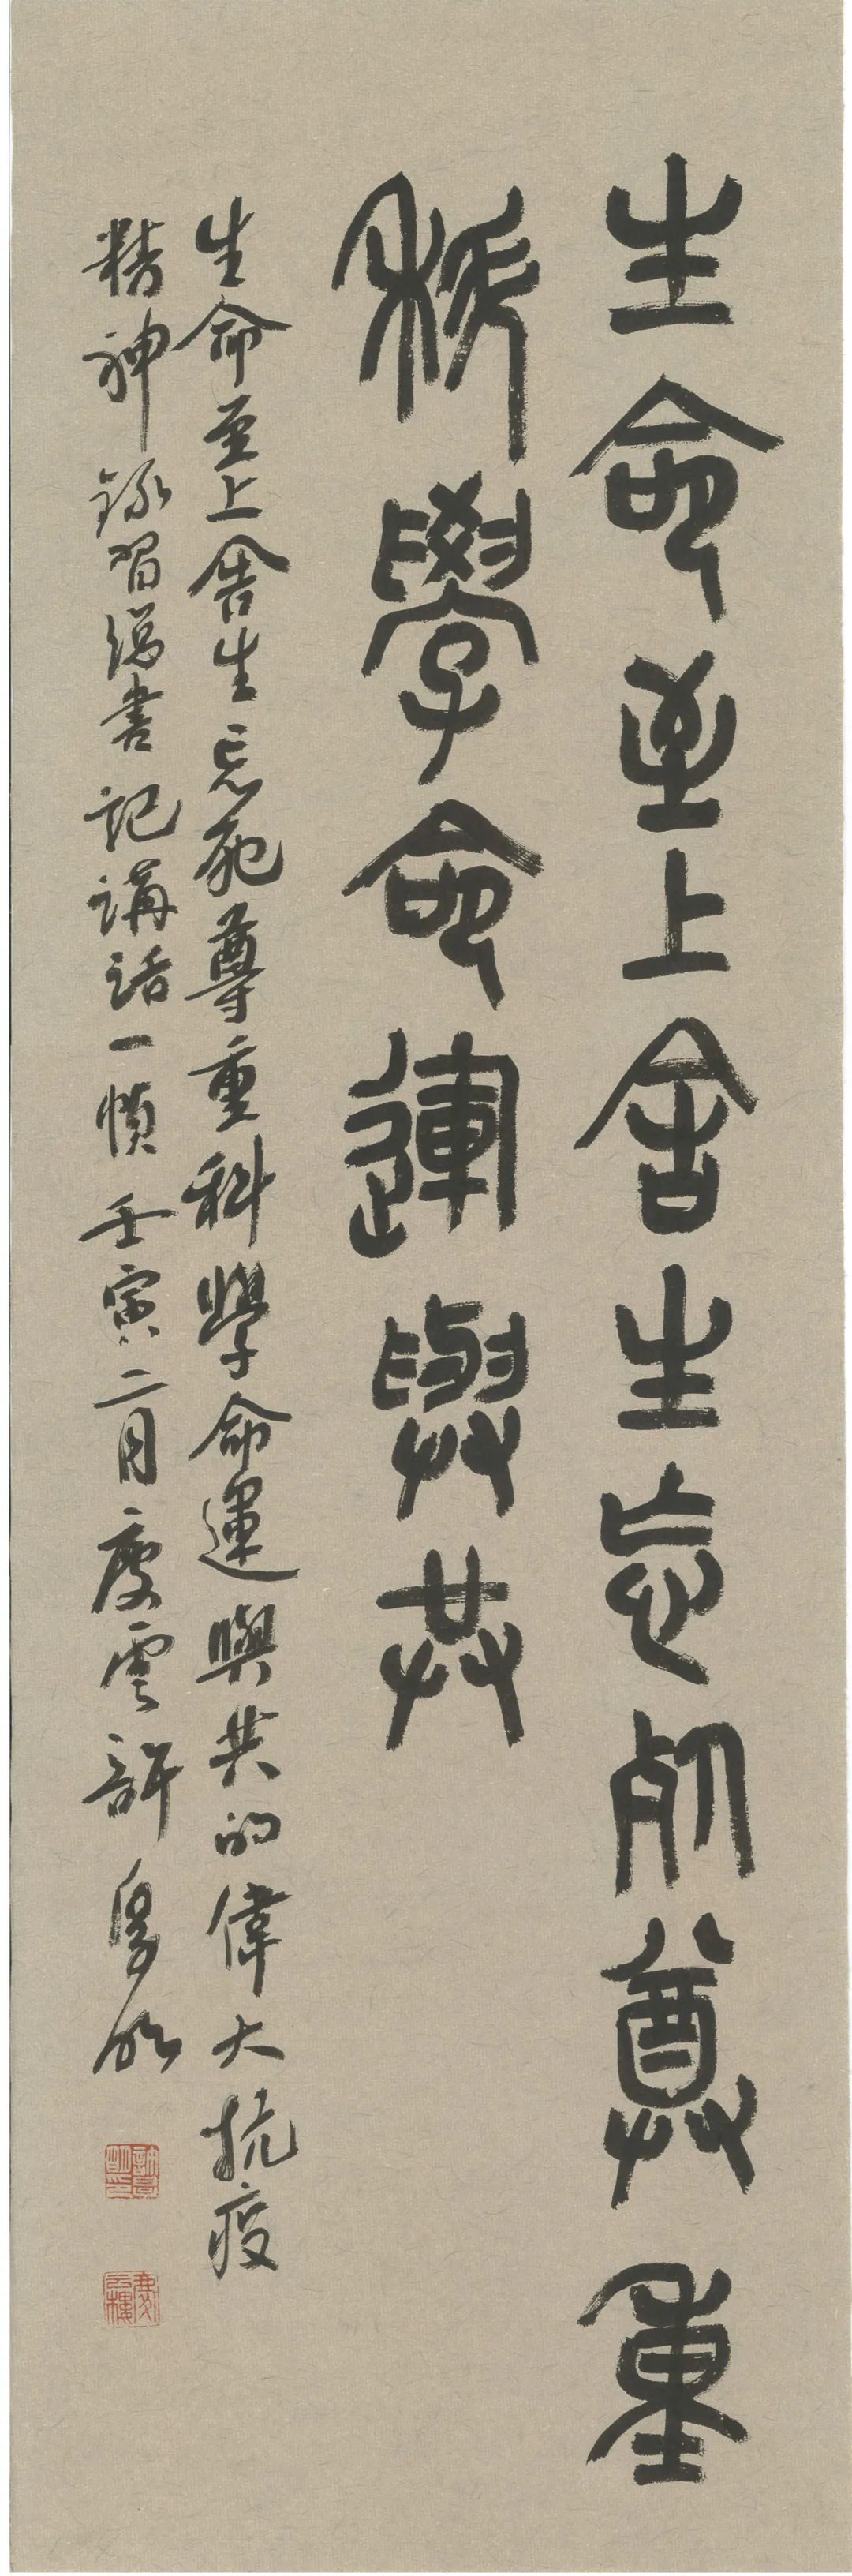 生命至上舍生忘死尊重
科學命運與共
生命至上舍生忘死尊重科學命運與共的偉大抗疫
精神 錄習總書記講話一幀 壬寅二月慶雲許